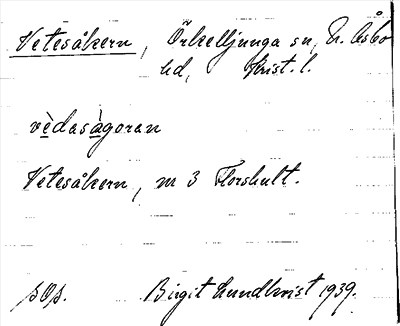 Vetesåkern, Örkelljunga sn, N. Åsbo
hd, Krist. l.
vèdasàgoran
Vetesåkern, m 3 Florshult.
sOs. Birgit Lundkvist 1939.